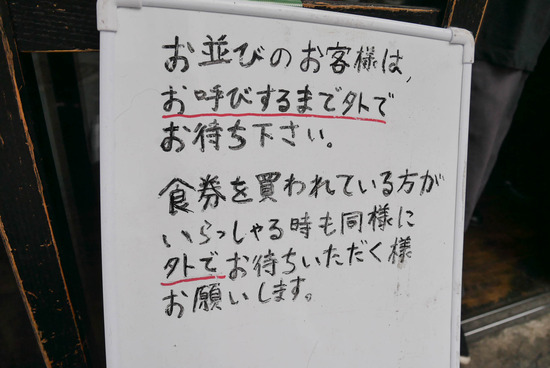 お並びのお客様は、
お呼びするまで外で
お待ち下さい。
食券を買われている方が
いらっしゃる時も同様に
外でお待ちいただく様
お願いします。